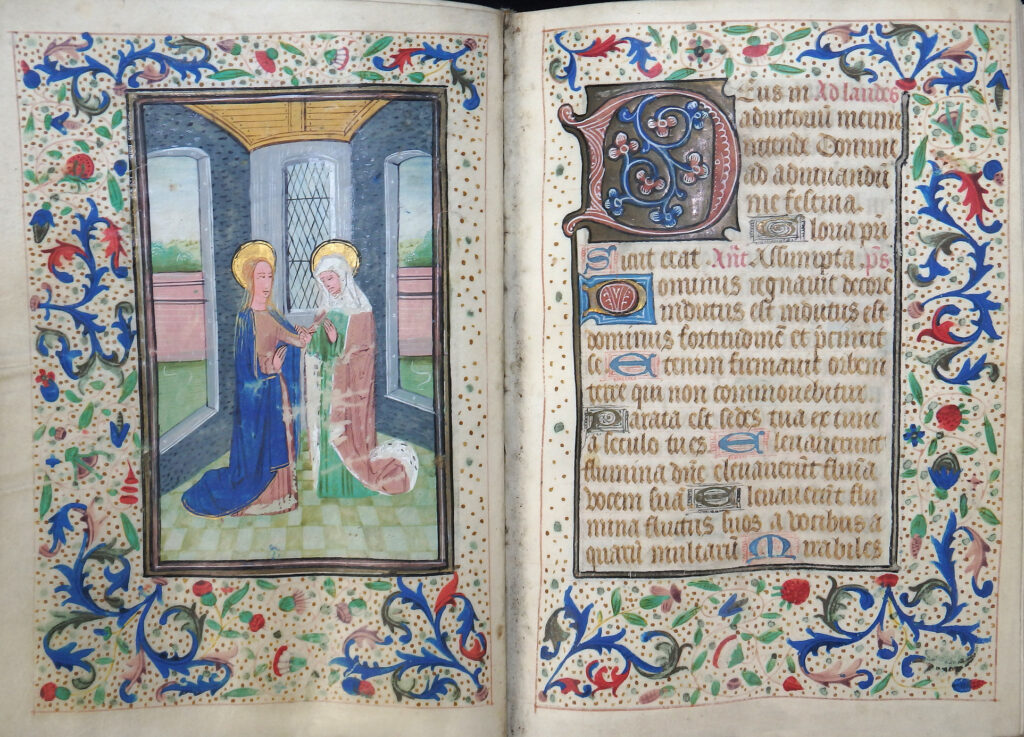 Deus in Ad laudes
adiutoriū meum
intende Domine
ad adiuuandū
me festina.
Gloria pri
Sicut erat Añt Assumpta ps
Dominus regnauit decore
indutus est indutus est
dominus fortitudinē et precincit
se Etenim firmauit orbem
terre qui non commouebitur
Parata est sedes tua ex tunc
a seculo tu es Eleuauerunt
flumina dn̄e eleuauerūt flūia
vocem suā Eleuauerūt flu
mina fluctus suos a vocibus a
quarū multarū Mirabiles